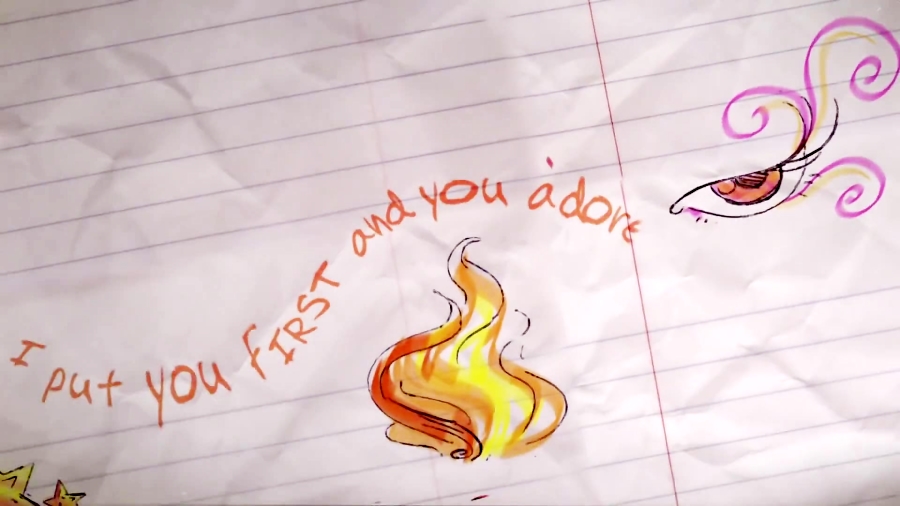 I put you fIRST and you adore